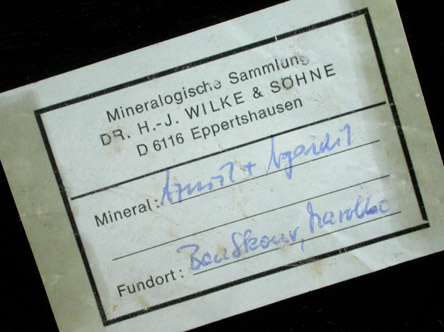 Mineralogische Sammlung
DR. H.-J. WILKE & SÖHNE
D 6116 Eppertshausen
Mineral: Azurit + Agardit
Fundort: Bou Skour, Marokko